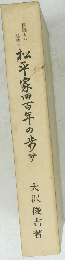 松平家四百年の歩み
大沢俊吉著